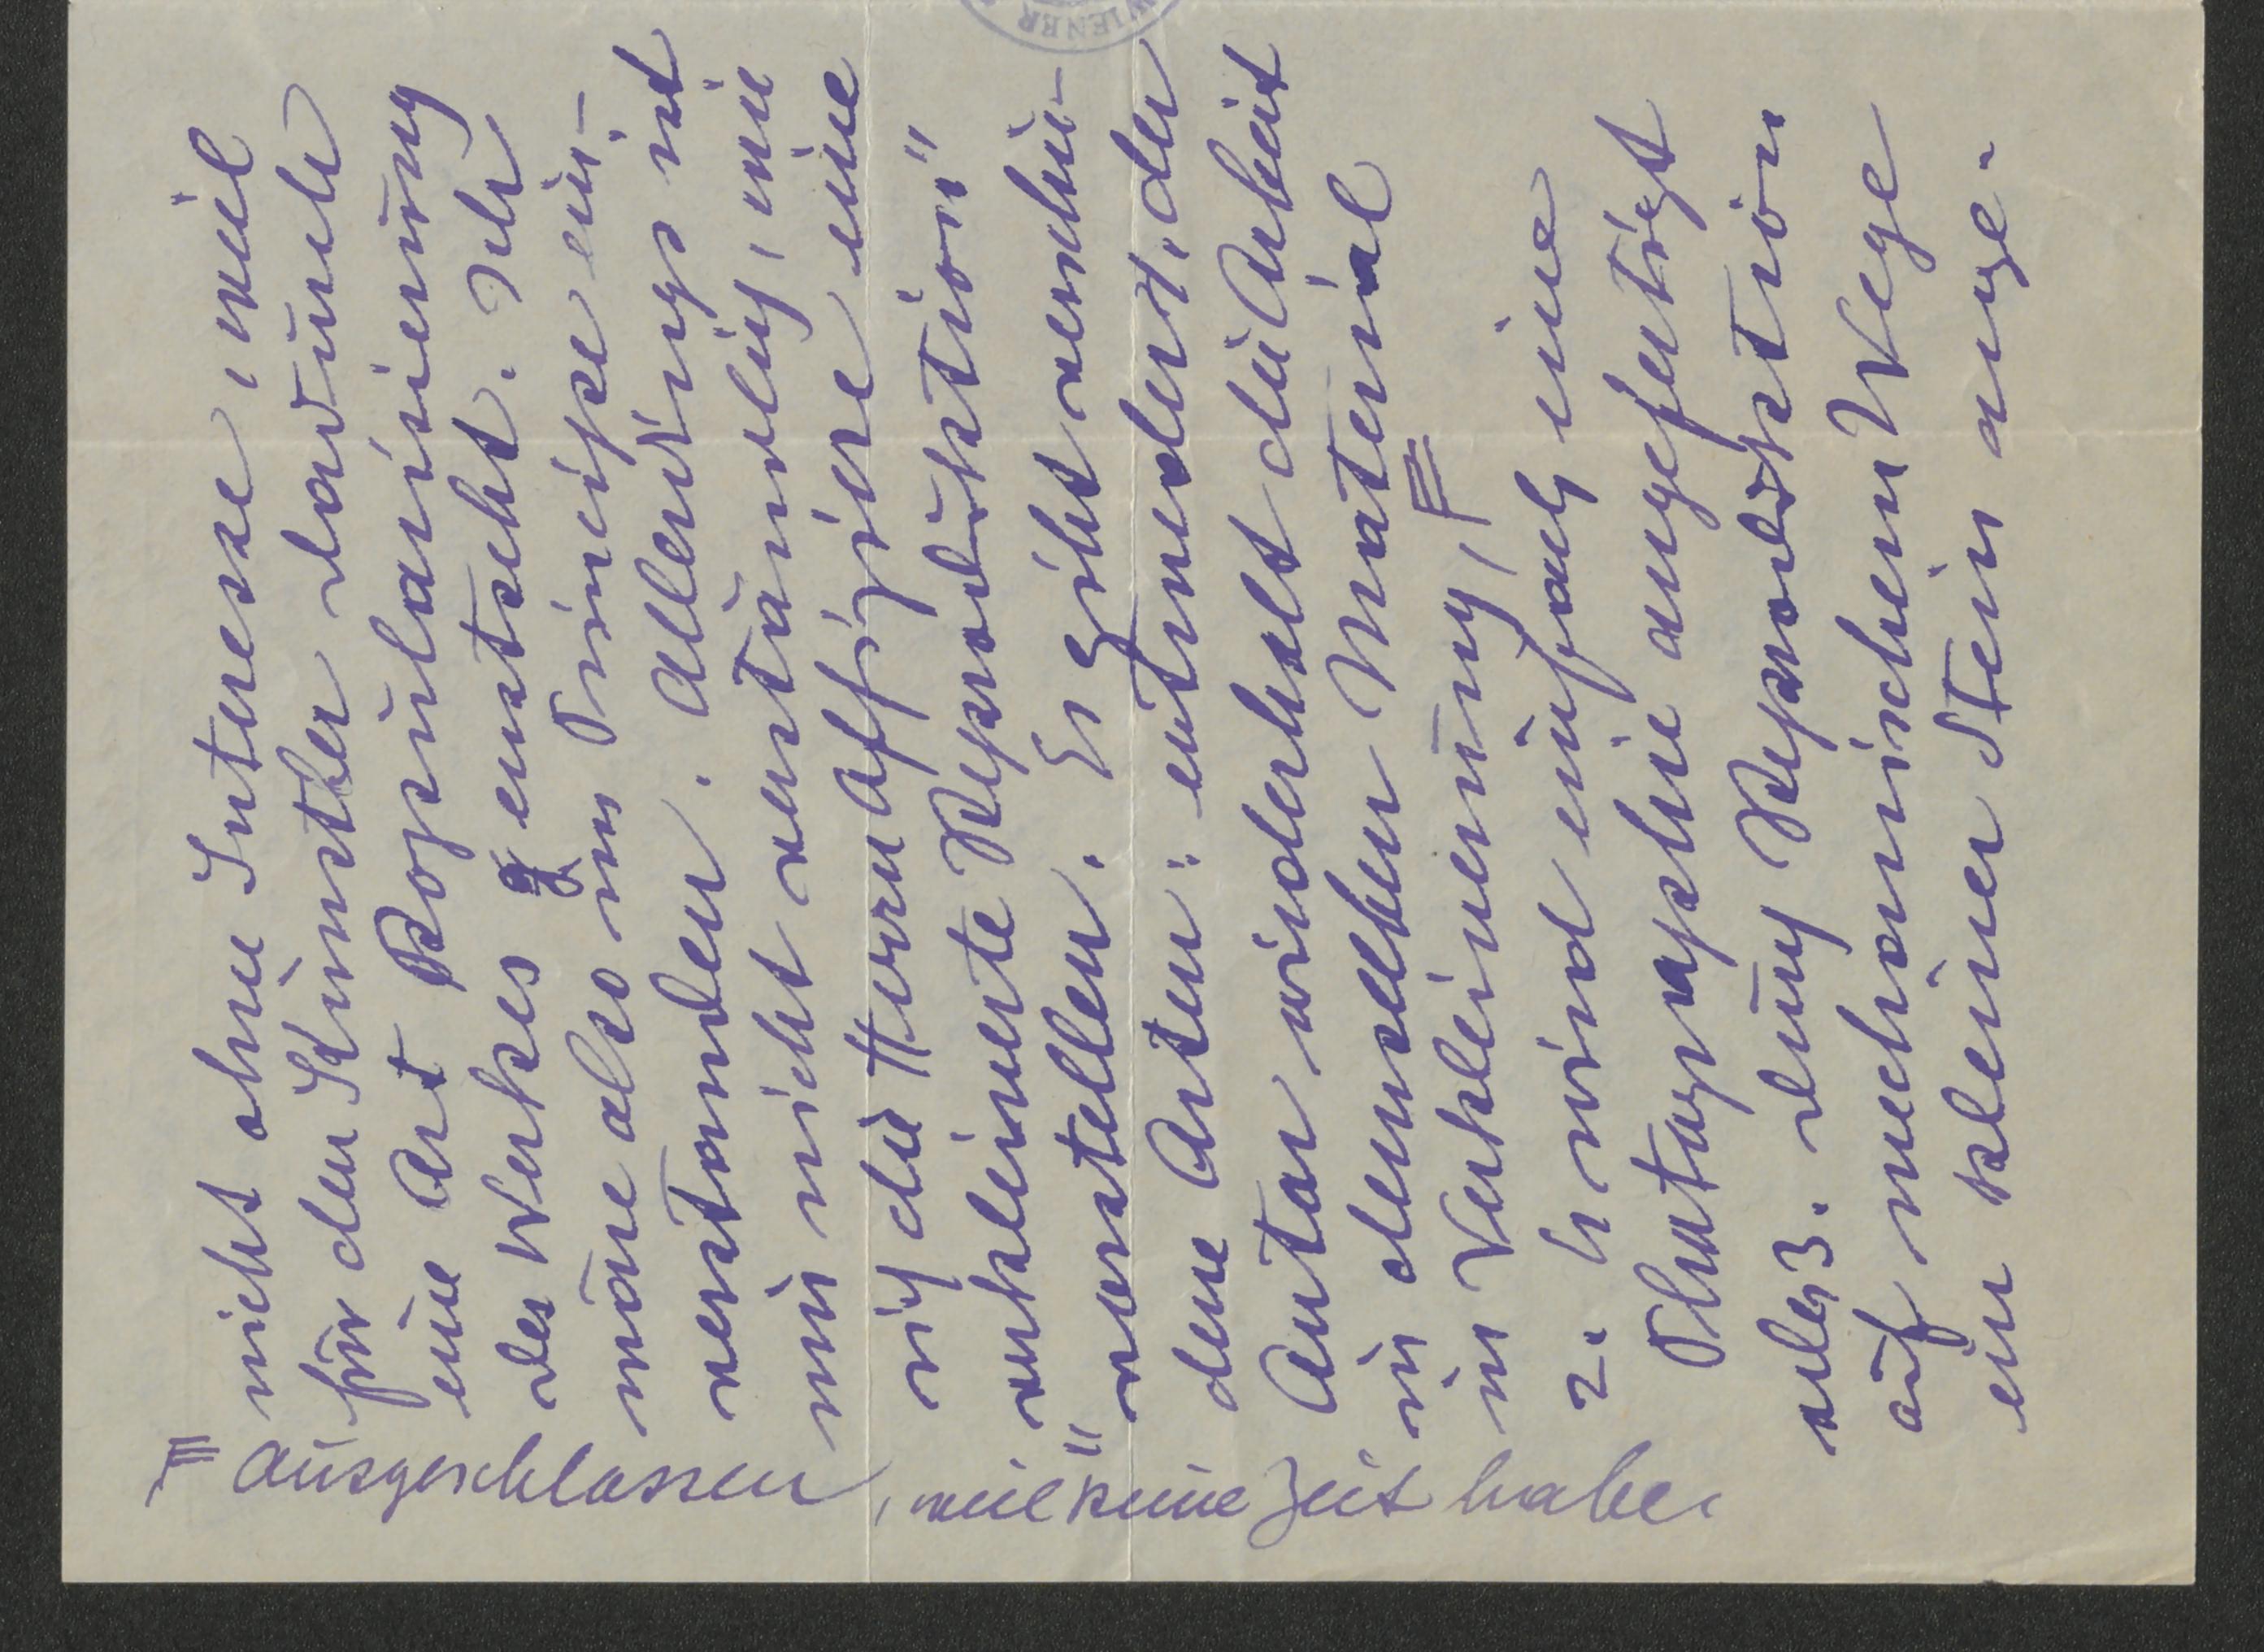 nicht ohne Interesse, weil
für den Künstler dadurch
eine Art Popularisierung
des Werkes entsteht. Ich
wäre also im Principe ein-
verstanden. Allerdings ist
mir nicht verständlich, wie
sich die Herren Affigjre eine
verkleinerte Reproduktion"
"vorstellen. Es gibt verschie-
dene Arten: entweder 1. der
Autor wiederholt die Arbeit
in demselben Material
in Verkleinerung,
2. Es wird einfach eine
Photographie angefertigt
oder 3. durch Reproduktion
auf mechanischem Wege
ein kleiner Stein ange-
ausgeschlossen, weil keine Zeit habe.
WIENER